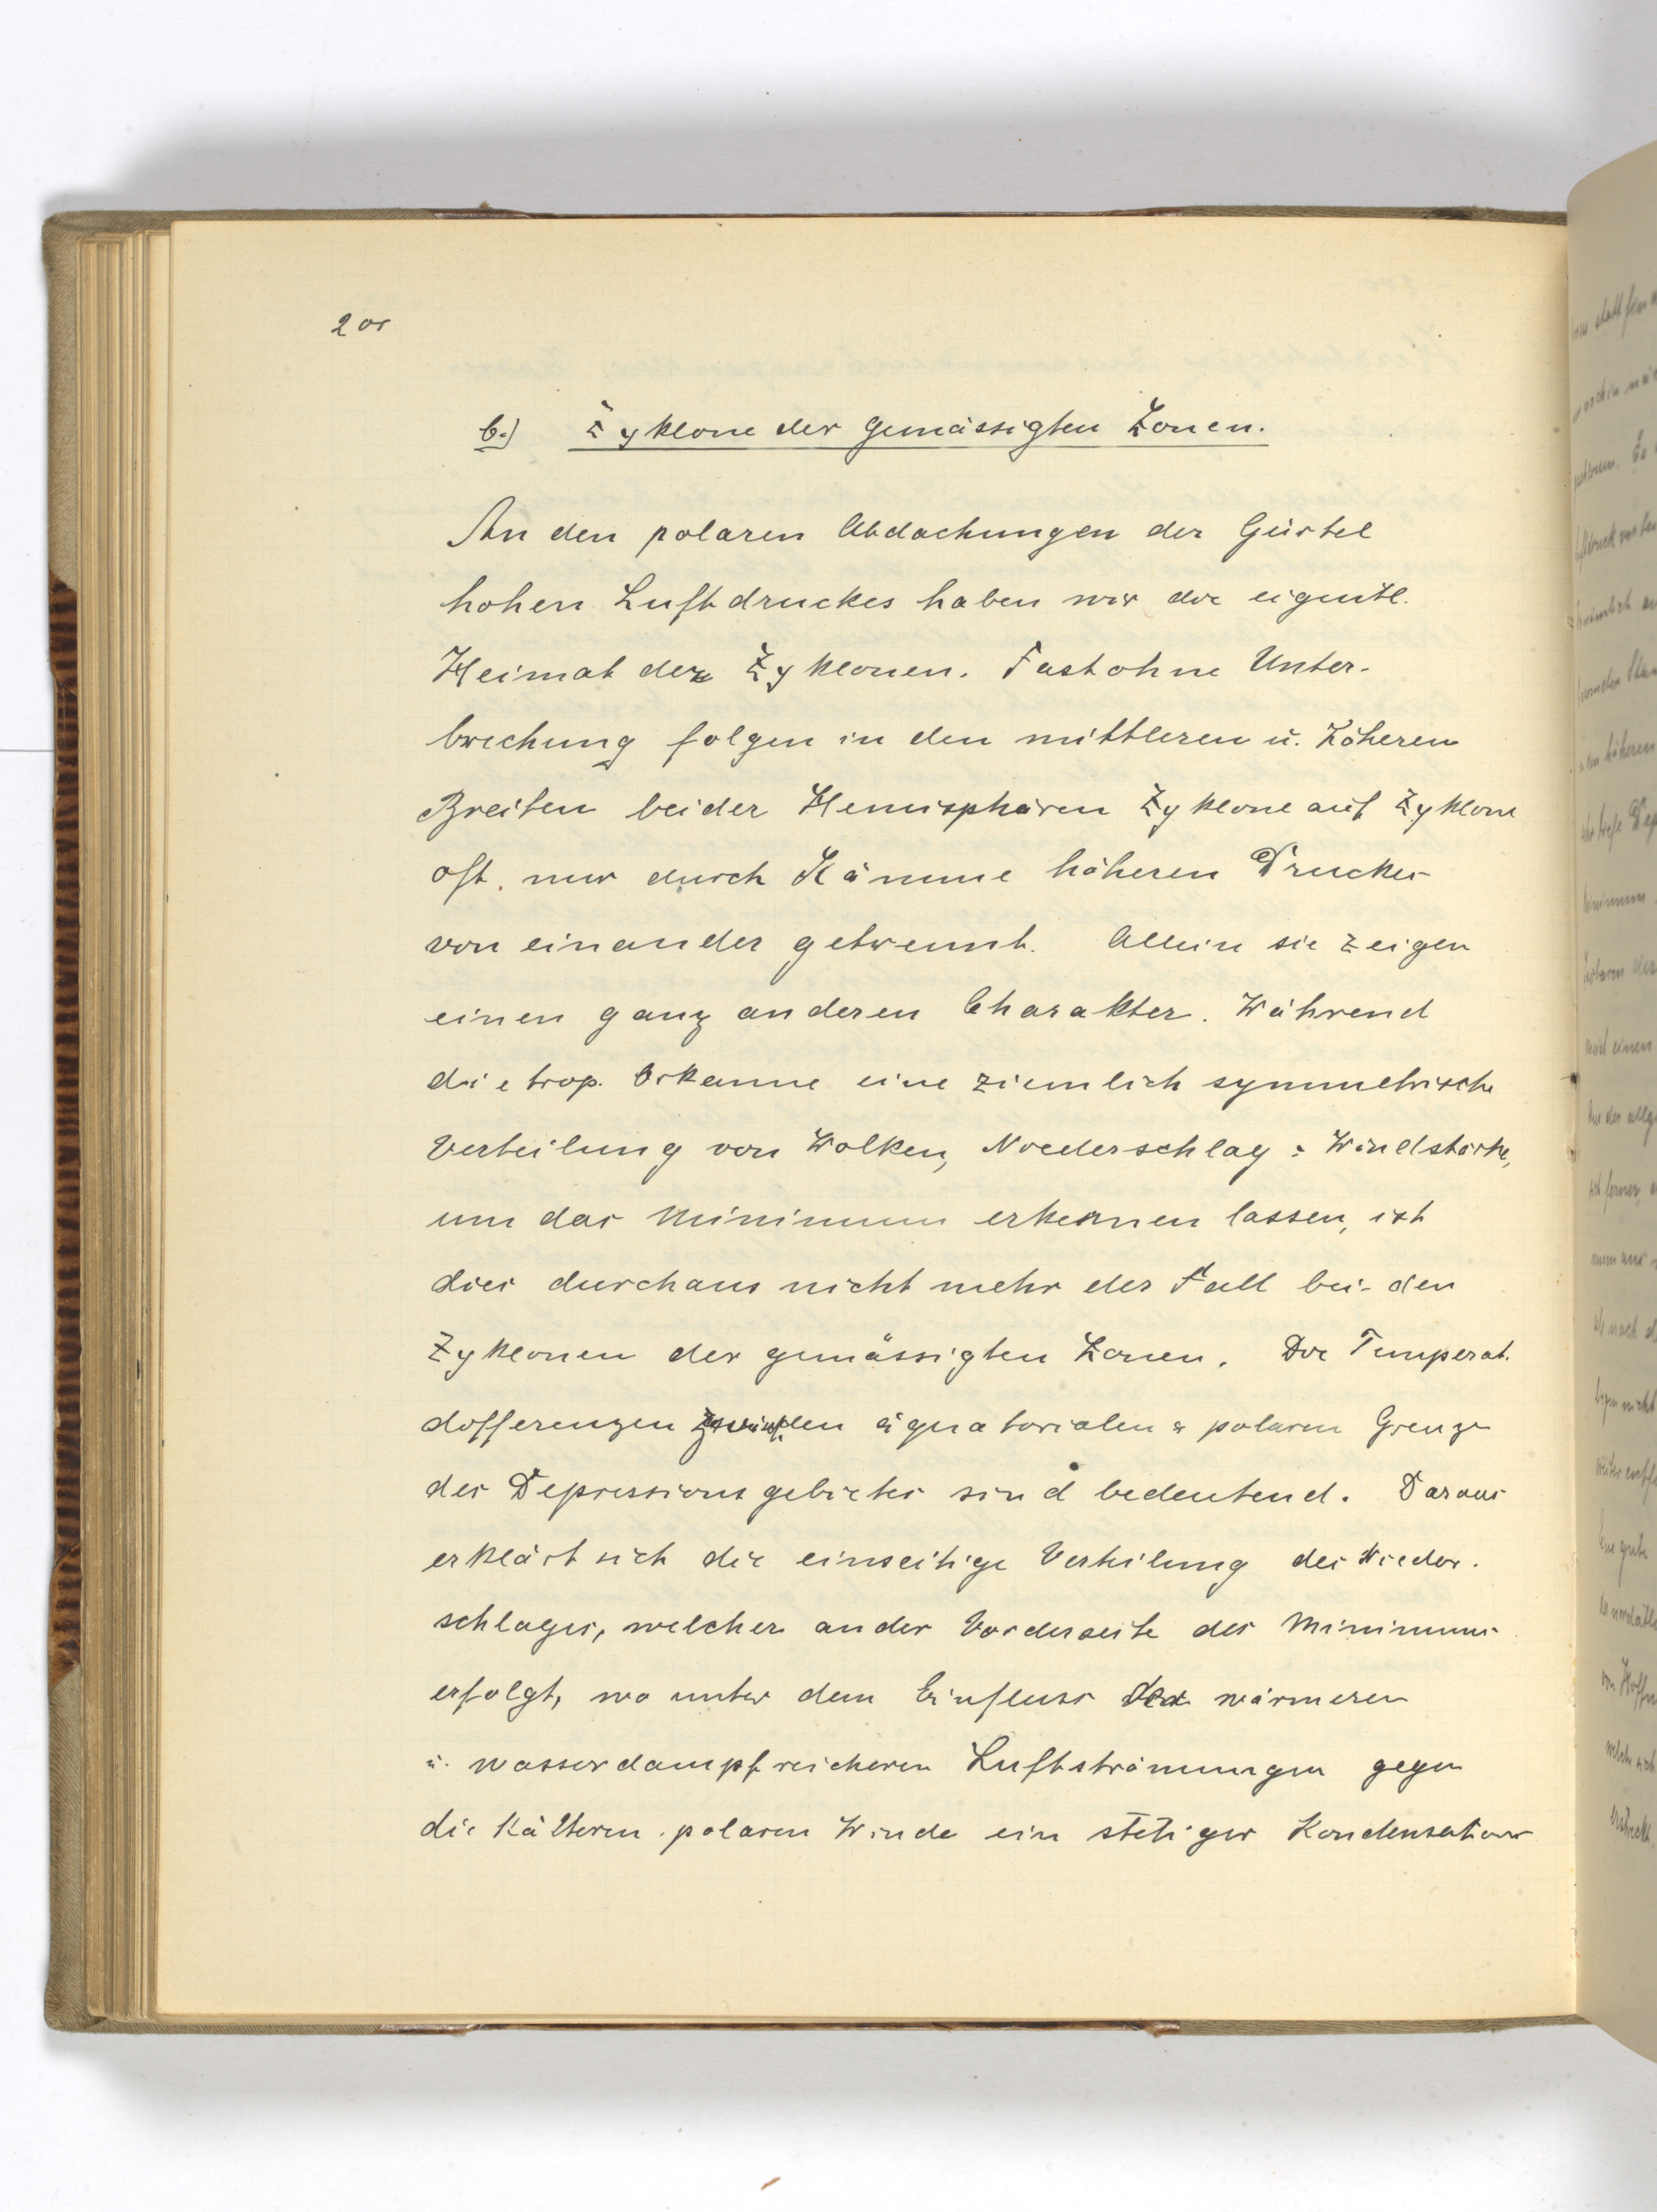 200
b.) Zyklone der gemässigten Zonen.
An den polaren Abdachungen der Gürtel
hohen Luftdruckes haben wir die eigentl.
Heimat der Zyklonen. Fast ohne Unter-
brechung folgen in den mittleren u. höheren
Breiten beider Hemisphären Zyklone auf Zyklone
oft nur durch Kämme höheren Druckes
von einander getrennt. Allein sie zeigen
einen ganz anderen Charakter. Während
die trop. Orkanne eine ziemlich symmetrische
Verteilung von Wolken, Niederschlag & Windstärke,
um das Minimum erkennen lassen, ist
dies durchaus nicht mehr der Fall bei den
Zyklonen der gemässigten Zonen. Die Temperat.
differenzen äquatorialen & polaren Grenze
des Depressionsgebietes sind bedeutend. Daraus
erklärt sich die einseitige Verteilung des Nieder-
schlages, welcher an der Vorderseite des Minimums
erfolgt, wo unter dem Einfluss der wärmeren
u. wasserdampfreicheren Luftströmungen gegen
die kälteren polaren Winde ein stetiger Kondensations